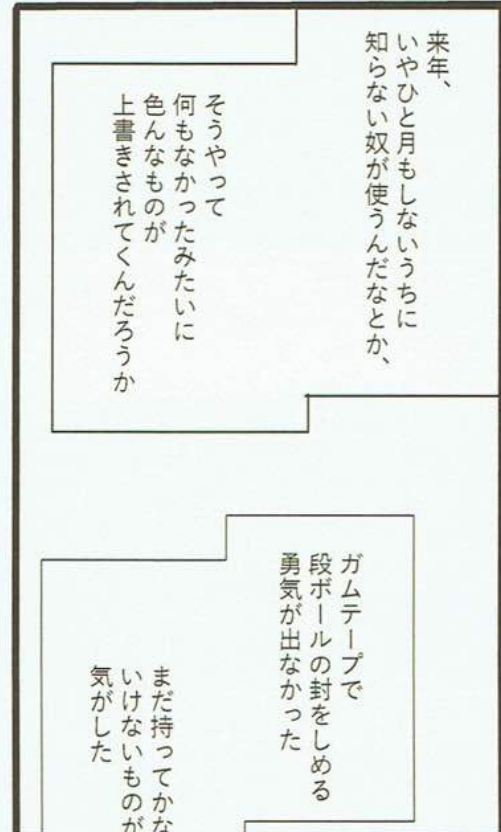 来年、
いやひと月もしないうちに
知らない奴が使うんだなとか、
そうやって
何もなかったみたいに
色んなものが
上書きされてくんだろうか
ガムテープで
段ボールの封をしめる
勇気が出なかった
まだ持ってかな
いけないものが
気がした